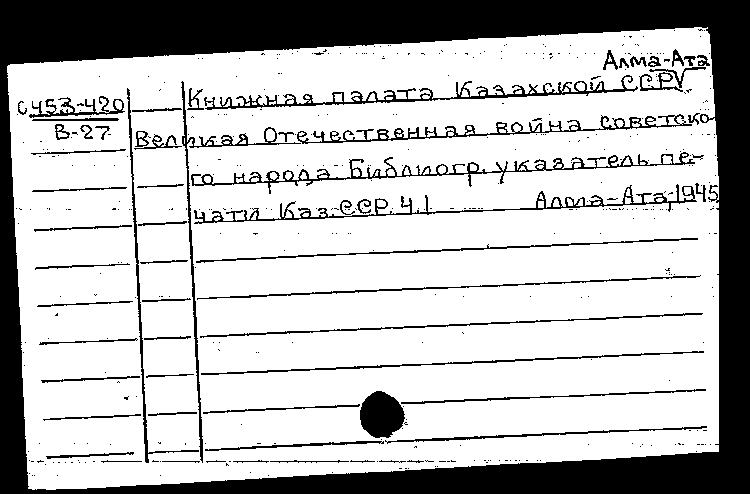 Алма-Ата
С453-420 Книжная палата Казахской ССР
В-27 Великая Отечественная война советско-
го народа. Библиогр. указатель пе-
чати Каз.ССР. Ч.1 Алма-Ата, 1945